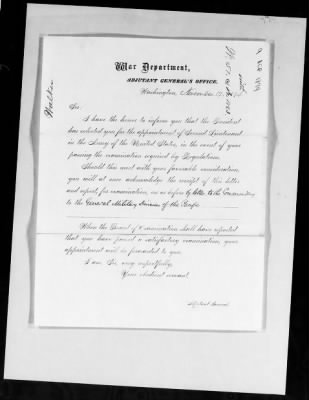 War Department,
ADJUTANT GENERAL'S OFFICE,
Washington, November 17,
Sir:
I have the honor to inform you that the President
has selected you for the appointment of Second Lieutenant
in the Army of the United States, in the event of your
passing the examination required by Regulations.
Should this meet with your favorable consideration,
you will at once acknowledge the receipt of this letter
and report, for examination, on or before by letter to the Commanding
General Military Division of the Pacific
When the Board of Examination shall have reported
that you have passed a satisfactory examination, your
appointment will be forwarded to you.
I am, Sir, very respectfully,
Your obedient servant,
Adjutant General.
Walker